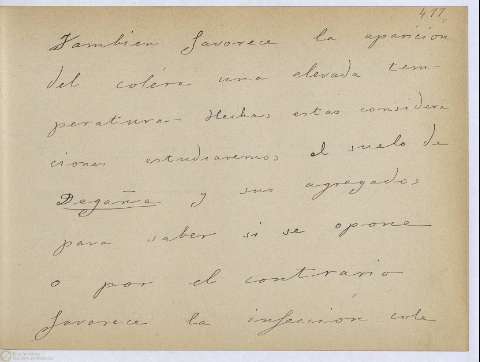 411
Tambien favorece la aparicion
del coléra una elevada tem-
peratura- Hechas estas considera
ciones estudiaremos el suelo de
Degaña y sus agregados
para saber si se opone
o por el contrario
favorece la infeccion cole